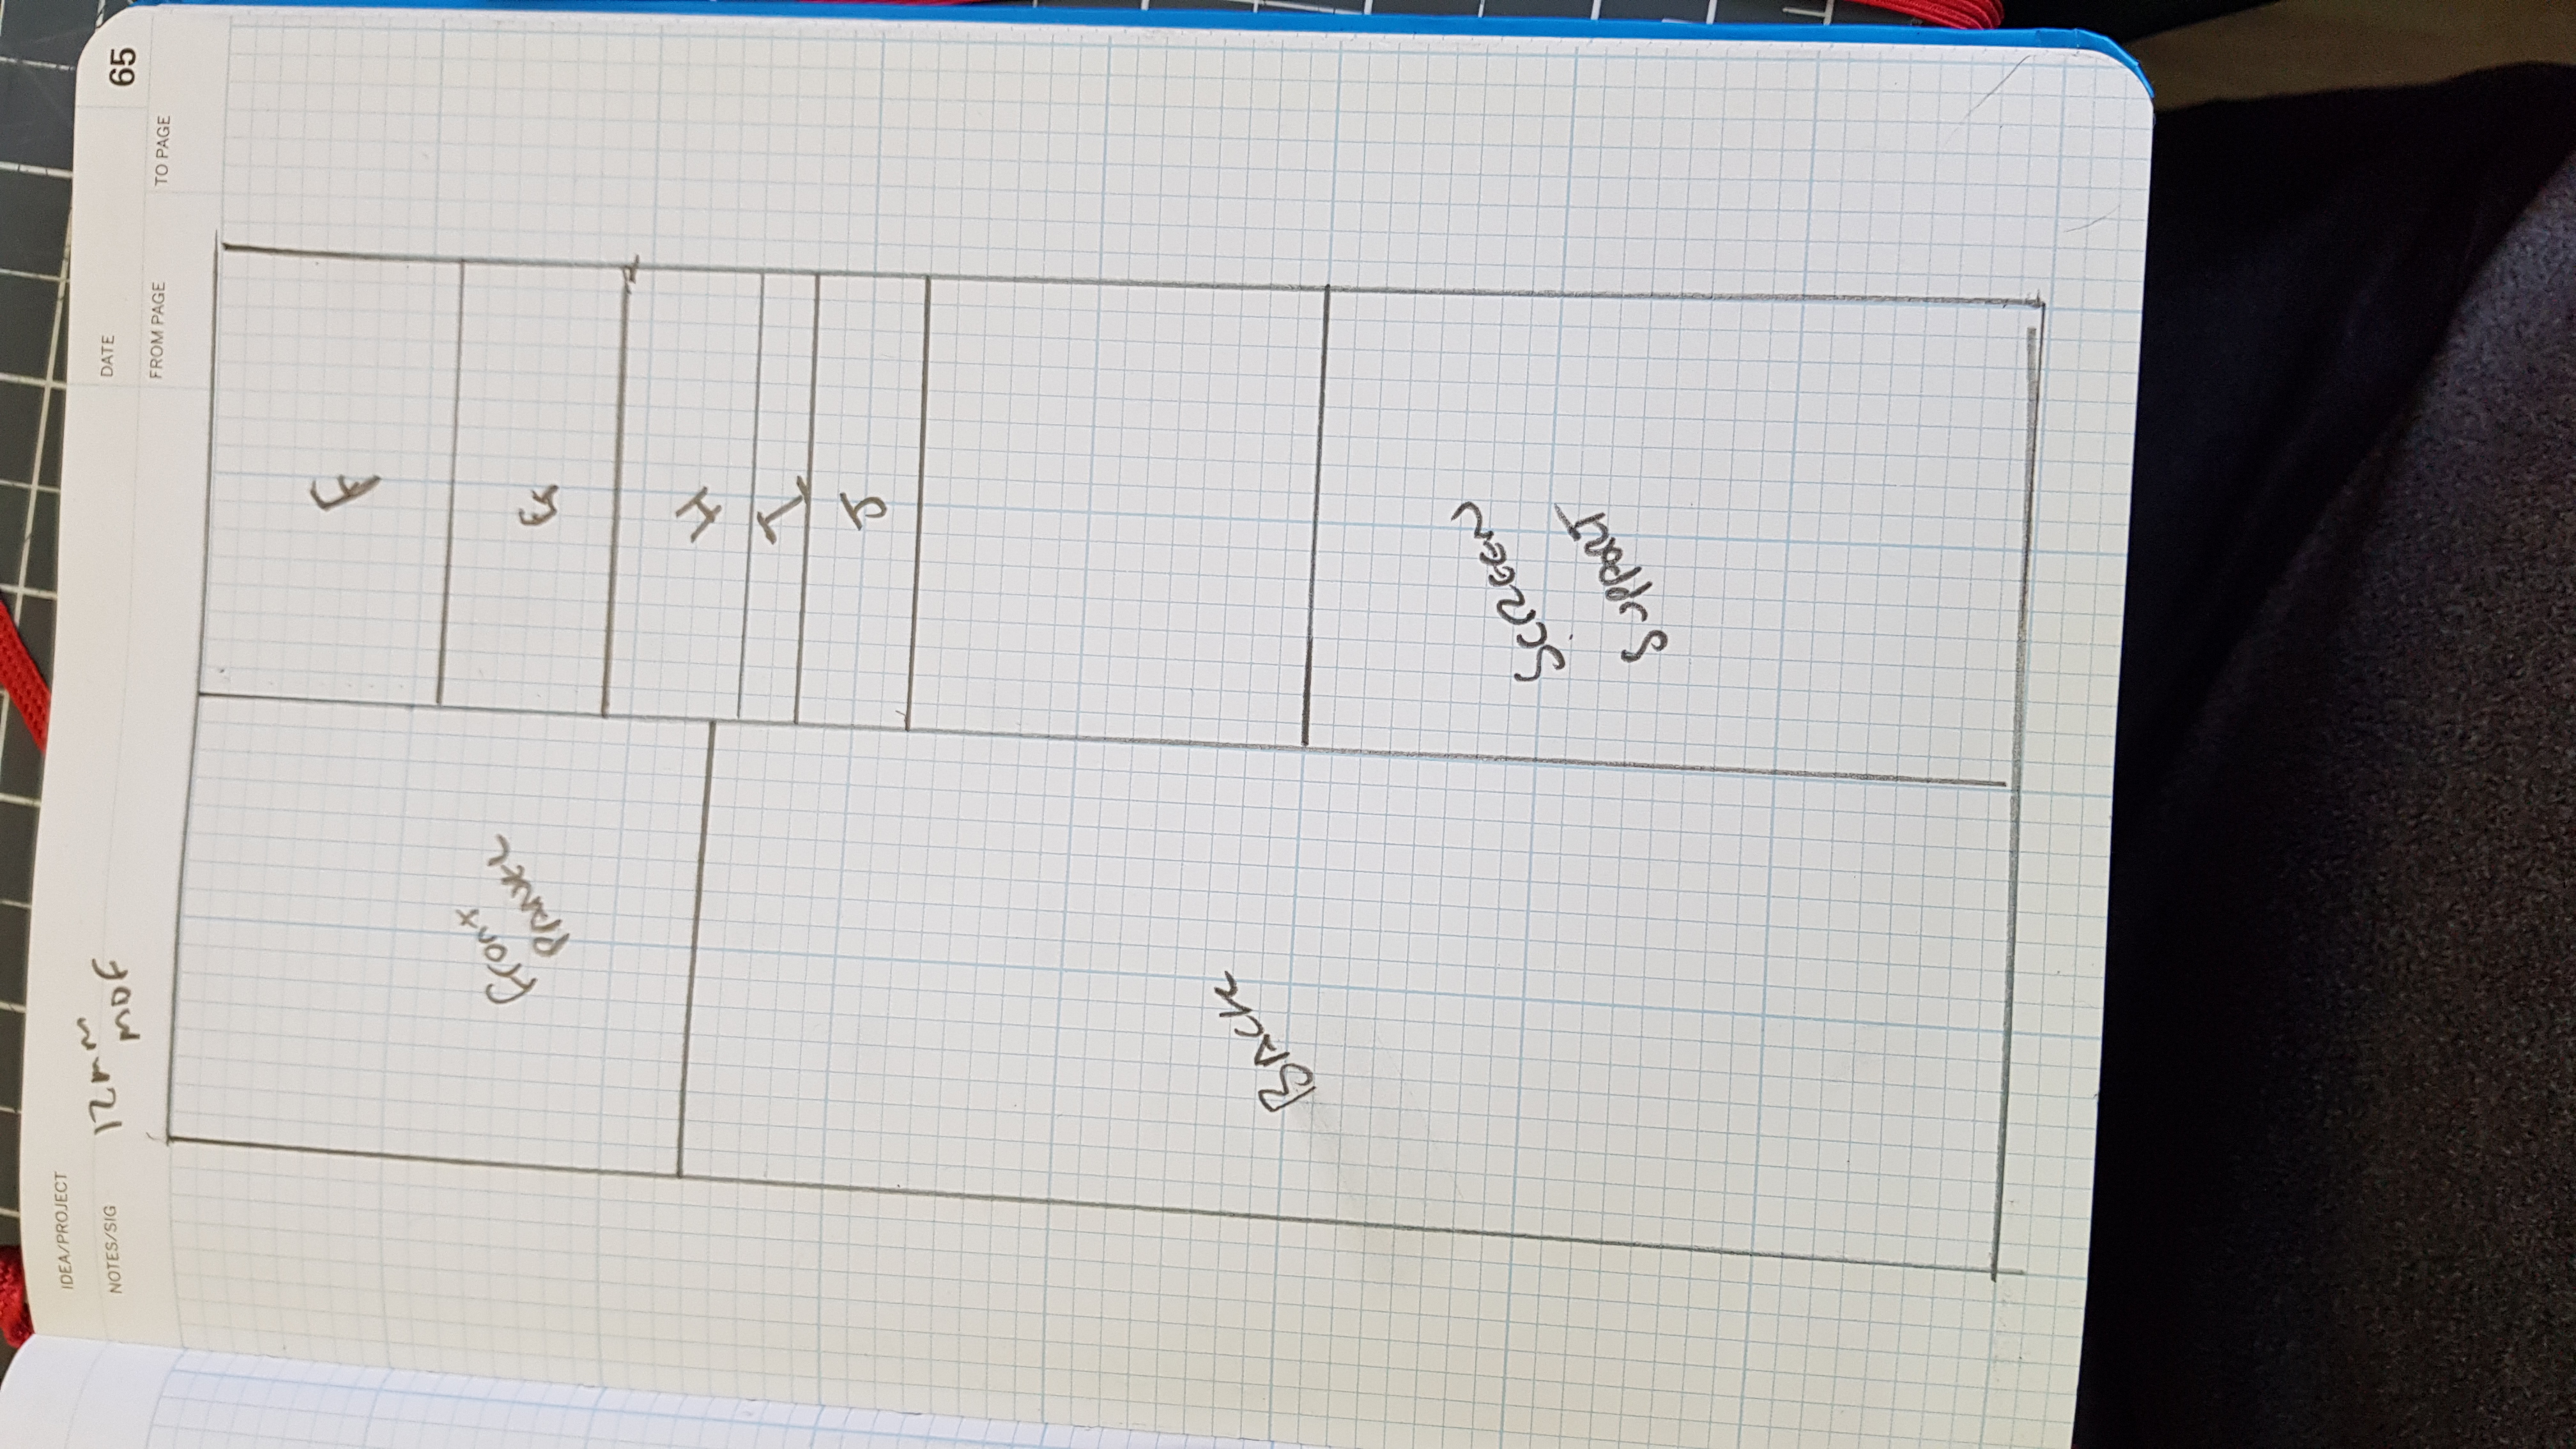 IDEA/PROJECT
NOTES/SIG
12mm
MDF
DATE
65
FROM PAGE
TO PAGE
F
Front
PANEL
G
H
I
J
BACK
SCREEN
SUPPORT